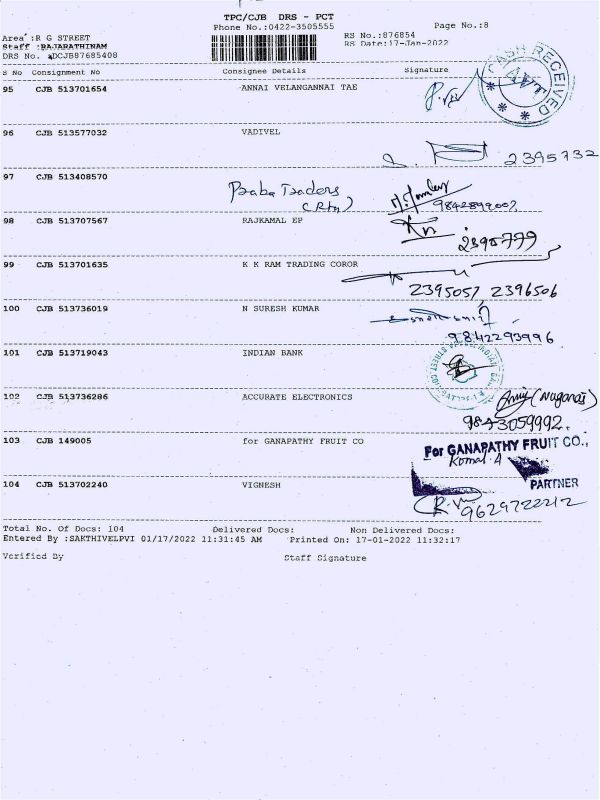 TPC/CJB DRS - PCT
Phone No.:0422-3505555
Page No.:8
Area :R G STREET
RS No.:876854
Staff :RAJARATHINAM
RS Date:17-Jan-2022
DRS No. DCJB87685408
S No Consignment No Consignee Details Signature
CASH RECEIVED
95 CJB 513701654 ANNAI VELANGANNAI TAE
96 CJB 513577032 VADIVEL
2395732
97 CJB 513408570
Baba Traders
98 CJB 513707567 RAJKAMAL EP
2395779
99 CJB 513701635 K K RAM TRADING COROR
2395057, 2396506
100 CJB 513736019 N SURESH KUMAR
9842293996
101 CJB 513719043 INDIAN BANK
102 CJB 513736286 ACCURATE ELECTRONICS
(Nagaraj)
9843059992.
103 CJB 149005 for GANAPATHY FRUIT CO
For GANAPATHY FRUIT CO.,
Komal. A
PARTNER
104 CJB 513702240 VIGNESH
9629722212
Total No. Of Docs: 104 Delivered Docs: Non Delivered Docs:
Entered By :SAKTHIVELPVI 01/17/2022 11:31:45 AM Printed On: 17-01-2022 11:32:17
Verified By Staff Signature